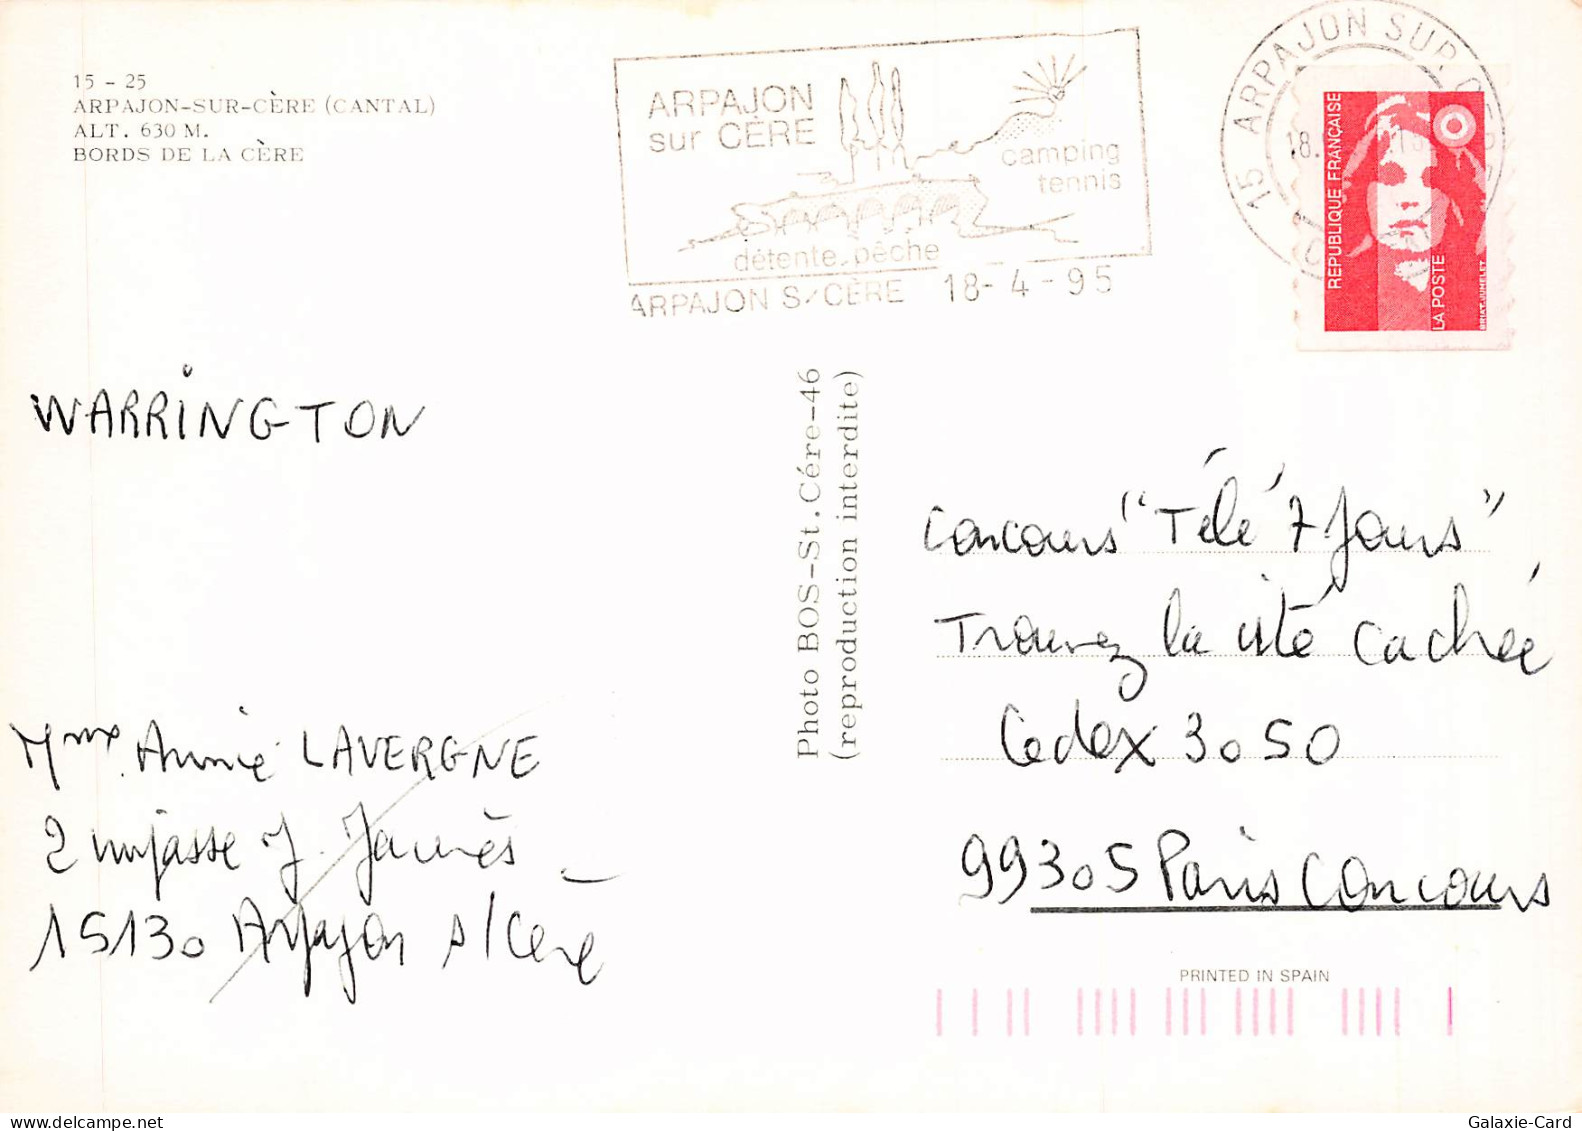 15 - 25
ARPAJON-SUR-CÈRE (CANTAL)
ALT. 630 M.
BORDS DE LA CÈRE
ARPAJON
sur CÈRE
camping
tennis
détente pêche
ARPAJON S/CÈRE 18-4-95
15 ARPAJON SUR CERE
18.
RÉPUBLIQUE FRANÇAISE
LA POSTE
BRIAT-JUMELET
WARRINGTON
Mme Annie LAVERGNE
2 impasse J. Jaurès
15130 Arpajon s/Cère
Photo BOS-St. Cére-46
(reproduction interdite)
concours "Télé 7 Jours"
Trouvez la cité cachée
Cedex 3050
99305 Paris Concours
PRINTED IN SPAIN
Galaxie-Card